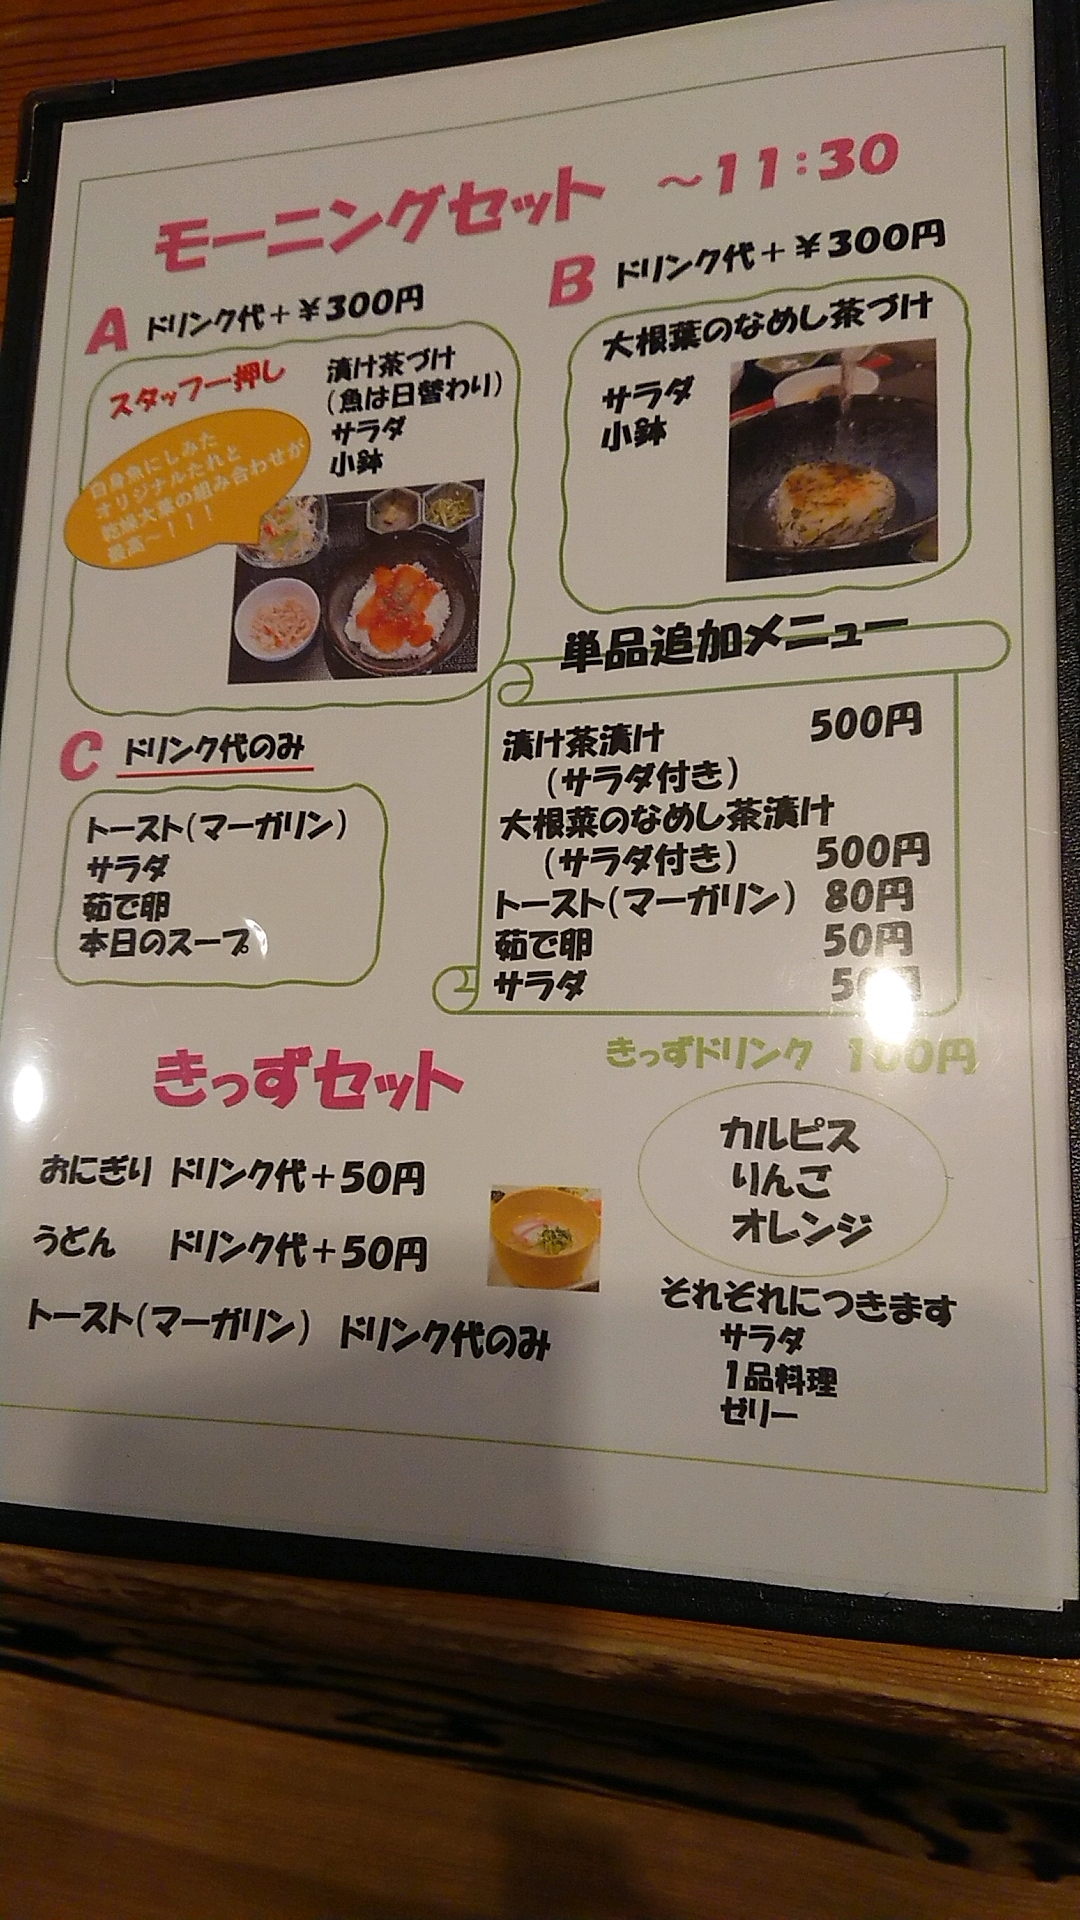 モーニングセット ～11：30
A ドリンク代＋￥300円
スタッフ一押し
白身魚にしみた
オリジナルたれと
乾燥大葉の組み合わせが
最高～！！！
漬け茶づけ
(魚は日替わり)
サラダ
小鉢
B ドリンク代＋￥300円
大根葉のなめし茶づけ
サラダ
小鉢
C ドリンク代のみ
トースト(マーガリン)
サラダ
茹で卵
本日のスープ
単品追加メニュー
漬け茶漬け 500円
(サラダ付き)
大根菜のなめし茶漬け
(サラダ付き) 500円
トースト(マーガリン) 80円
茹で卵 50円
サラダ 50円
きっずセット
おにぎり ドリンク代＋50円
うどん ドリンク代＋50円
トースト(マーガリン) ドリンク代のみ
きっずドリンク 100円
カルピス
りんご
オレンジ
それぞれにつきます
サラダ
1品料理
ゼリー